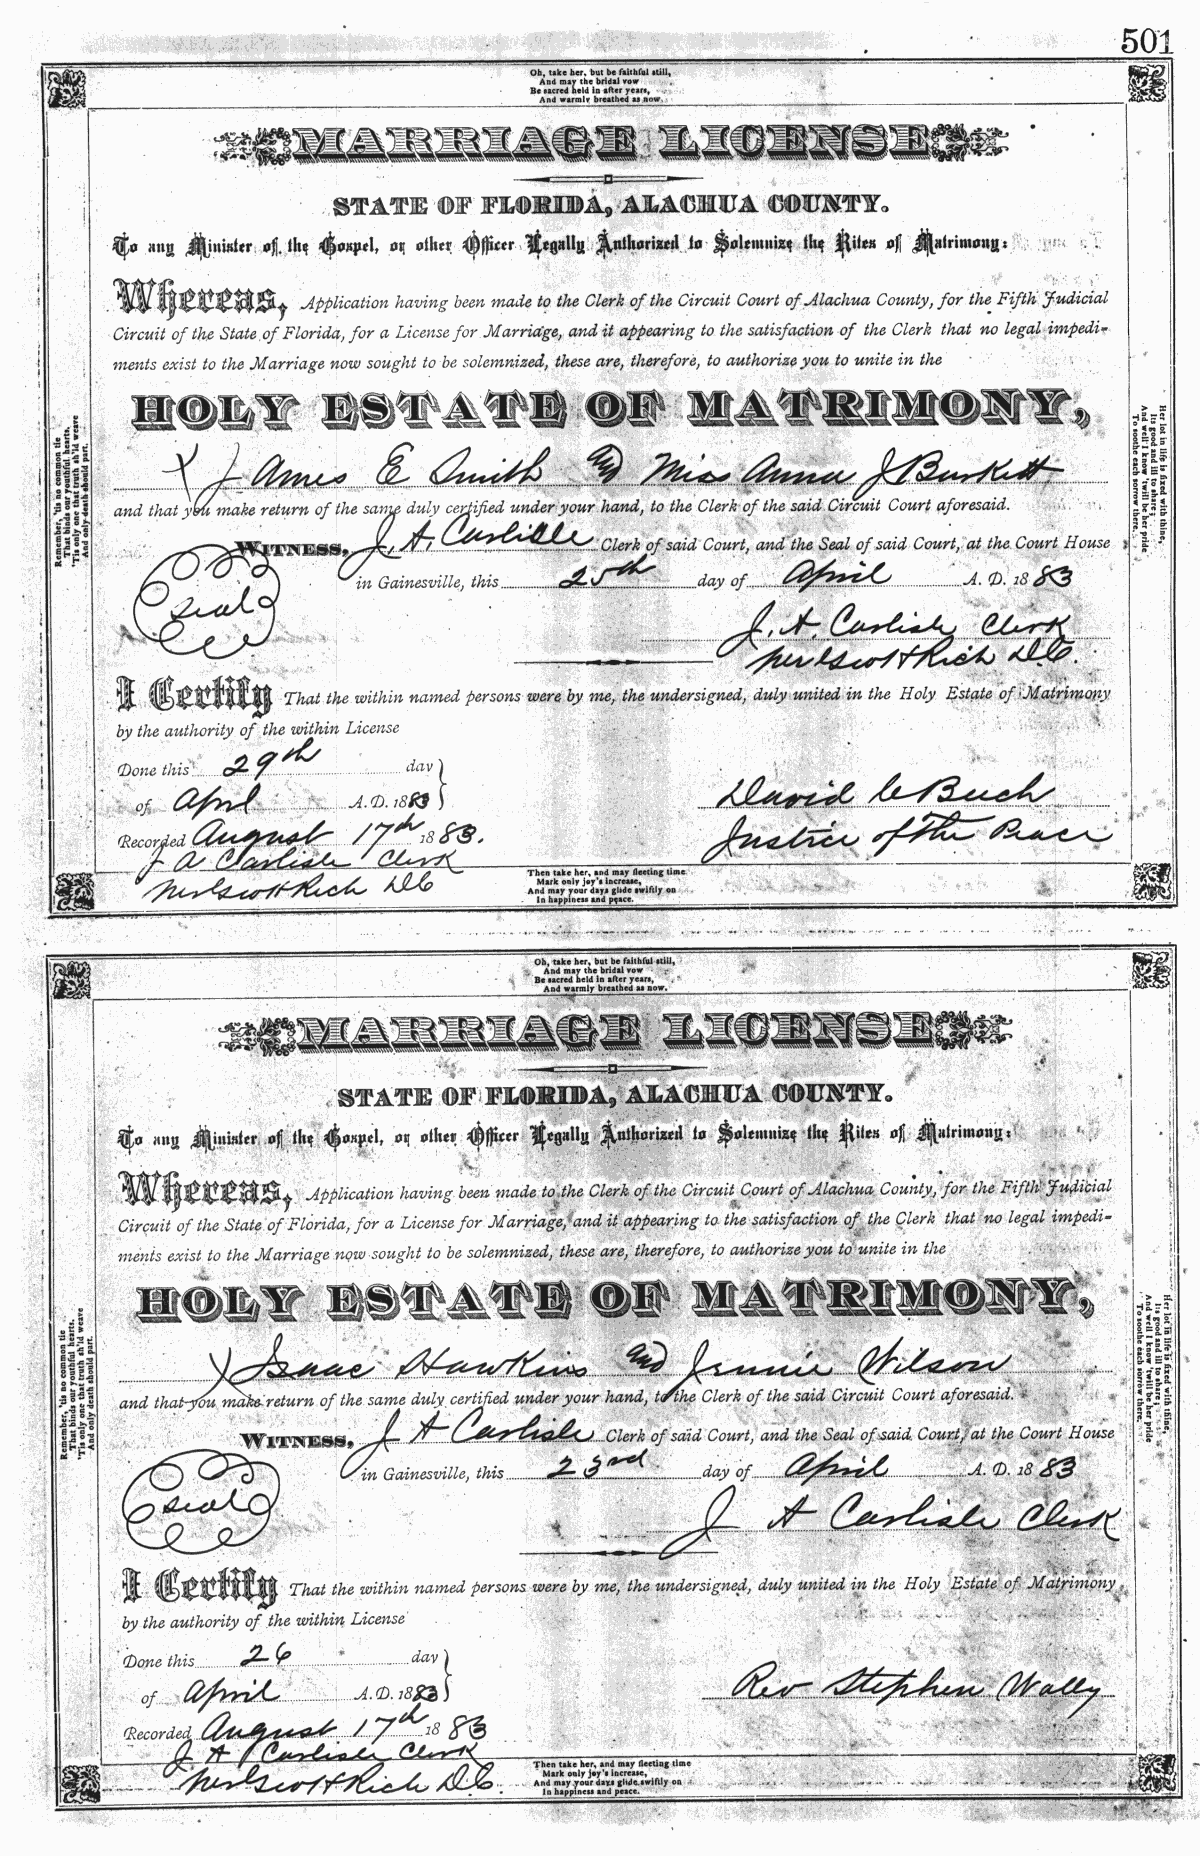 501
Oh, take her, but be faithful still,
And may the bridal vow
Be sacred held in after years,
And warmly breathed as now.
MARRIAGE LICENSE
STATE OF FLORIDA, ALACHUA COUNTY.
To any Minister of the Gospel, or other Officer Legally Authorized to Solemnize the Rites of Matrimony:
Whereas, Application having been made to the Clerk of the Circuit Court of Alachua County, for the Fifth Judicial
Circuit of the State of Florida, for a License for Marriage, and it appearing to the satisfaction of the Clerk that no legal impedi-
ments exist to the Marriage now sought to be solemnized, these are, therefore, to authorize you to unite in the
HOLY ESTATE OF MATRIMONY,
X James E Smith and Miss Anna J Burkett
and that you make return of the same duly certified under your hand, to the Clerk of the said Circuit Court aforesaid.
WITNESS, J. A. Carlisle Clerk of said Court, and the Seal of said Court, at the Court House
seal
in Gainesville, this 25th day of April A. D. 1883
J. A. Carlisle Clerk
Rich D.C.
I Certify That the within named persons were by me, the undersigned, duly united in the Holy Estate of Matrimony
by the authority of the within License
Done this 29th day
of April A. D. 1883
David
Justice of the Peace
Recorded August 17th 1883.
J A Carlisle Clerk
Rich DC
Then take her, and may fleeting time
Mark only joy's increase,
And may your days glide swiftly on
In happiness and peace.
Remember, 'tis no common tie
That binds our youthful hearts,
'Tis only one that truth sh'ld weave
And only death should part.
Her lot in life is fixed with thine,
Its good and ill to share;
And well I know 'twill be her pride
To soothe each sorrow there.
Oh, take her, but be faithful still,
And may the bridal vow
Be sacred held in after years,
And warmly breathed as now.
MARRIAGE LICENSE
STATE OF FLORIDA, ALACHUA COUNTY.
To any Minister of the Gospel, or other Officer Legally Authorized to Solemnize the Rites of Matrimony:
Whereas, Application having been made to the Clerk of the Circuit Court of Alachua County, for the Fifth Judicial
Circuit of the State of Florida, for a License for Marriage, and it appearing to the satisfaction of the Clerk that no legal impedi-
ments exist to the Marriage now sought to be solemnized, these are, therefore, to authorize you to unite in the
HOLY ESTATE OF MATRIMONY,
X Isaac Hawkins and Jennie Wilson
and that you make return of the same duly certified under your hand, to the Clerk of the said Circuit Court aforesaid.
WITNESS, J A Carlisle Clerk of said Court, and the Seal of said Court, at the Court House
seal
in Gainesville, this 23rd day of April A. D. 1883
J A Carlisle Clerk
I Certify That the within named persons were by me, the undersigned, duly united in the Holy Estate of Matrimony
by the authority of the within License
Done this 26 day
of April A. D. 1883
Rev Stephen Wally
Recorded August 17th 1883
J A Carlisle Clerk
Rich D.C.
Then take her, and may fleeting time
Mark only joy's increase,
And may your days glide swiftly on
In happiness and peace.
Remember, 'tis no common tie
That binds our youthful hearts,
'Tis only one that truth sh'ld weave
And only death should part.
Her lot in life is fixed with thine,
Its good and ill to share;
And well I know 'twill be her pride
To soothe each sorrow there.